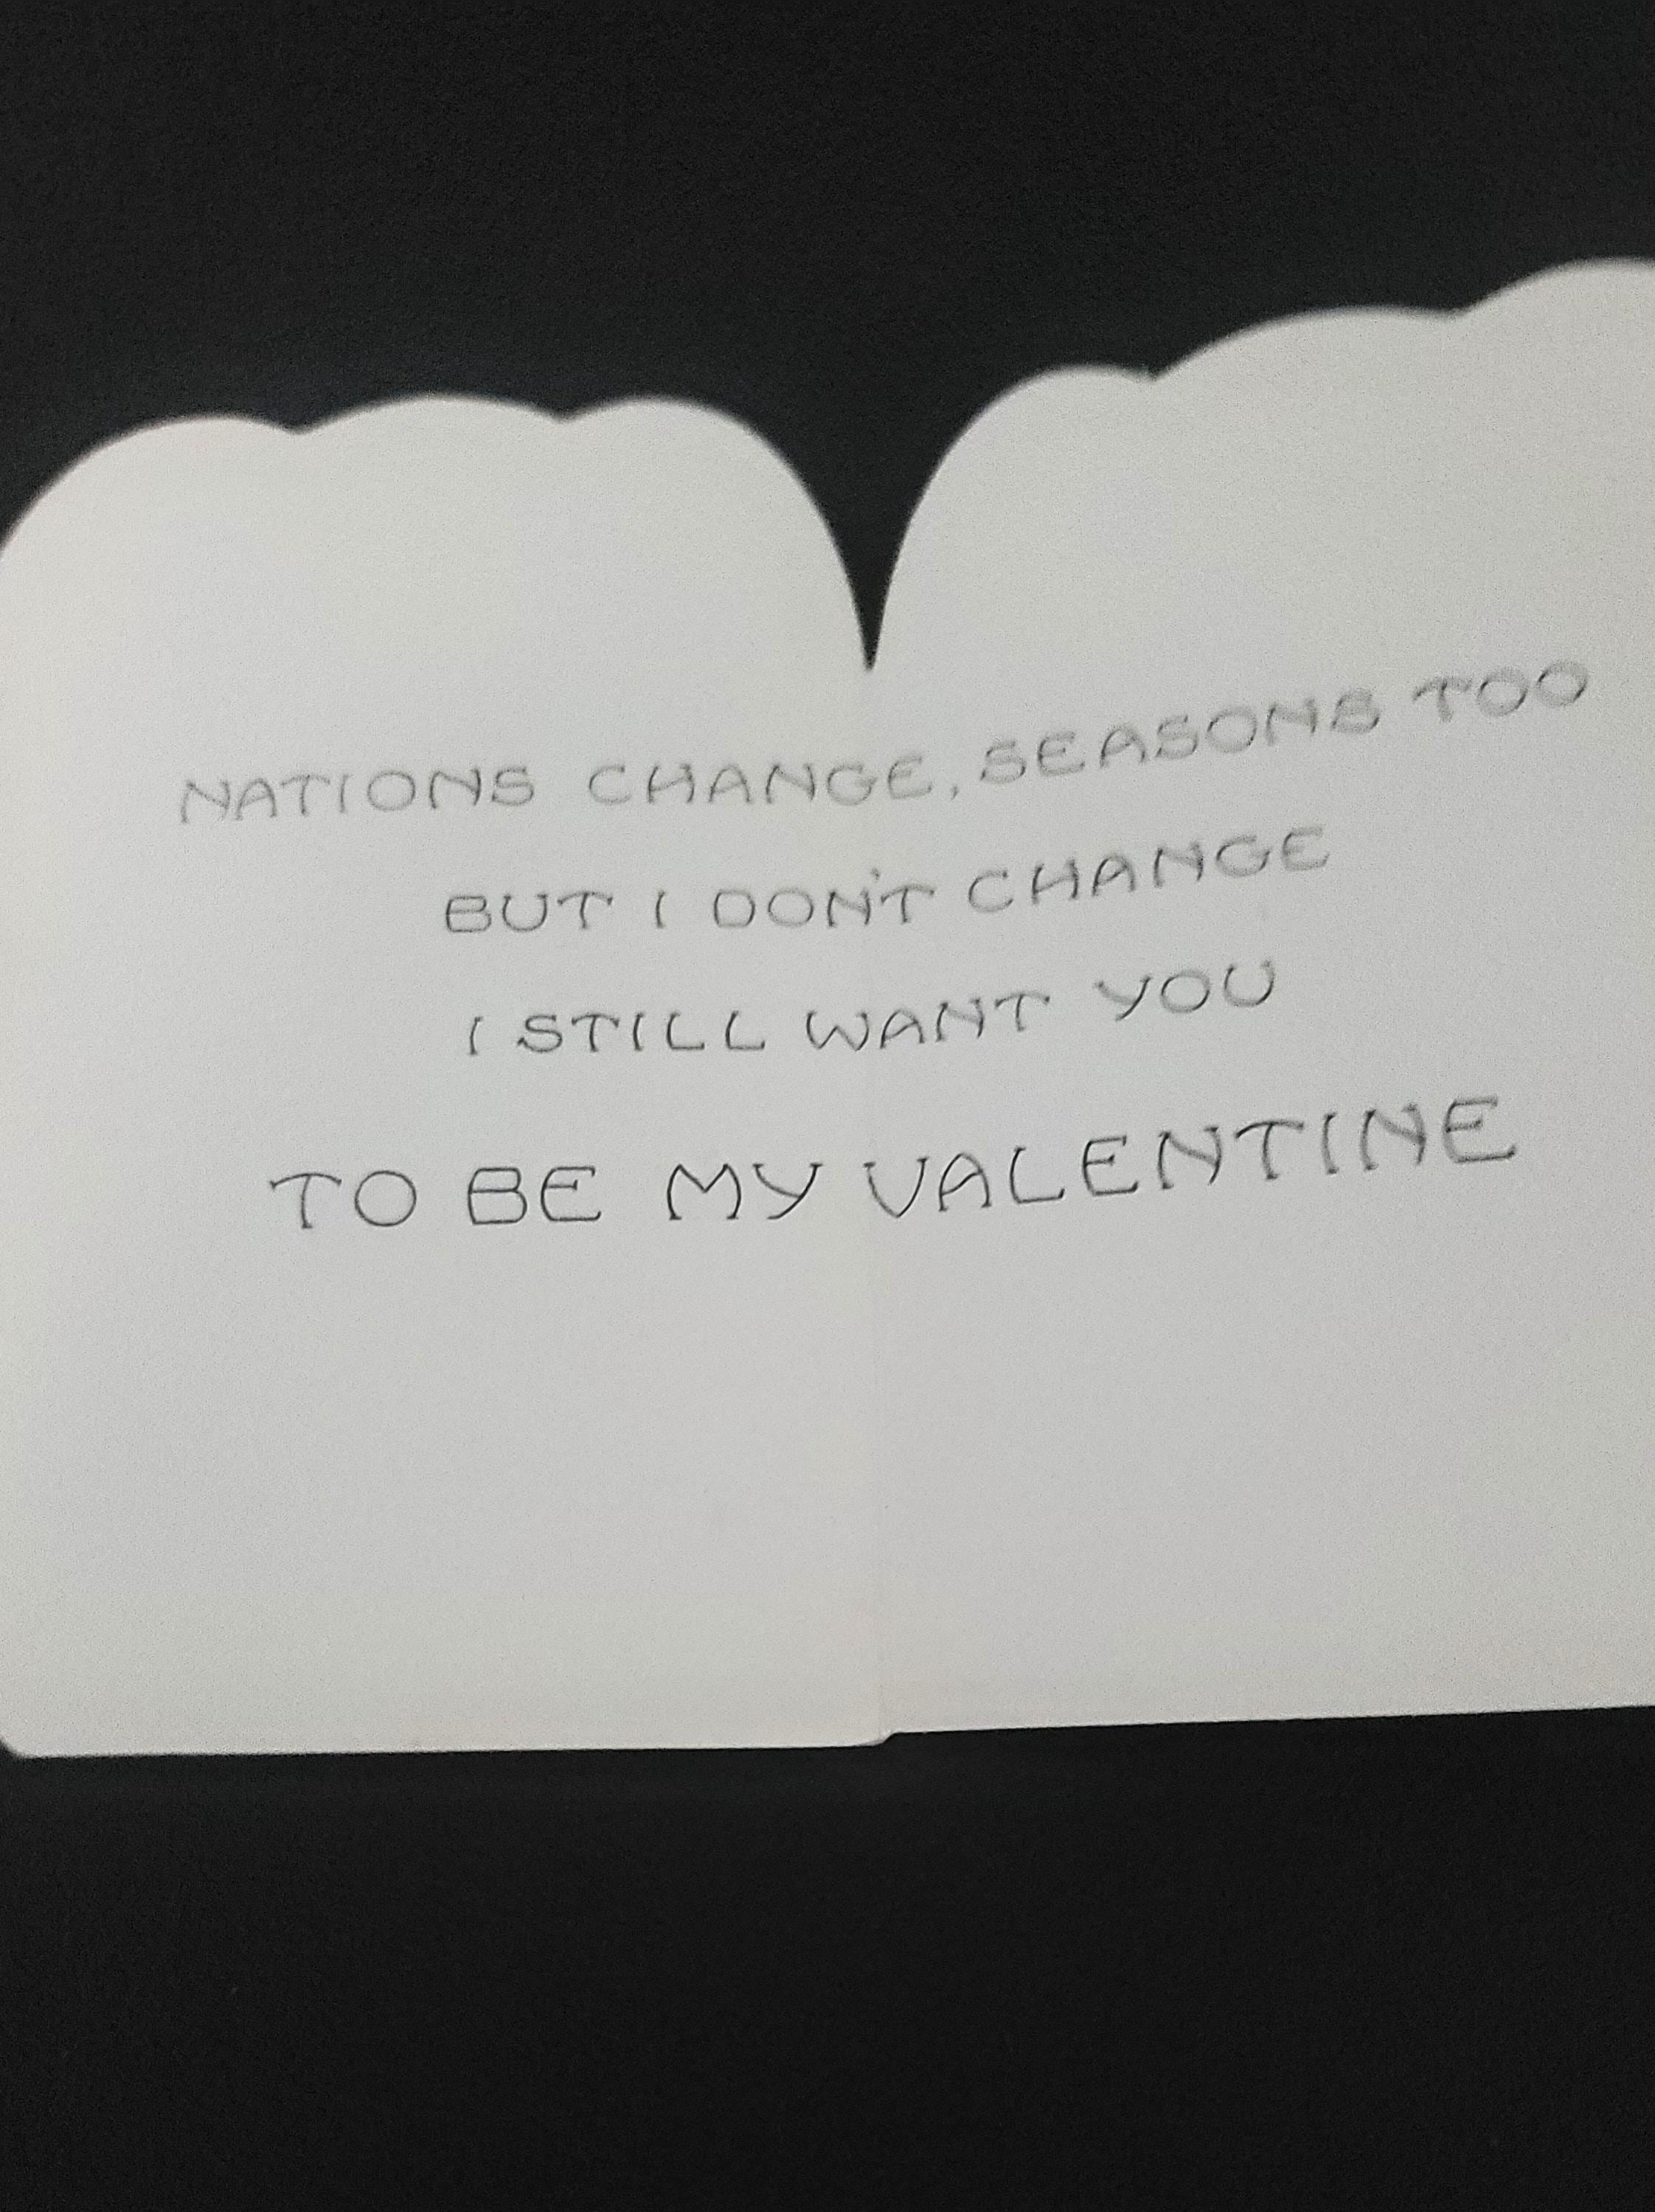 NATIONS CHANGE, SEASONS TOO
BUT I DON'T CHANGE
I STILL WANT YOU
TO BE MY VALENTINE